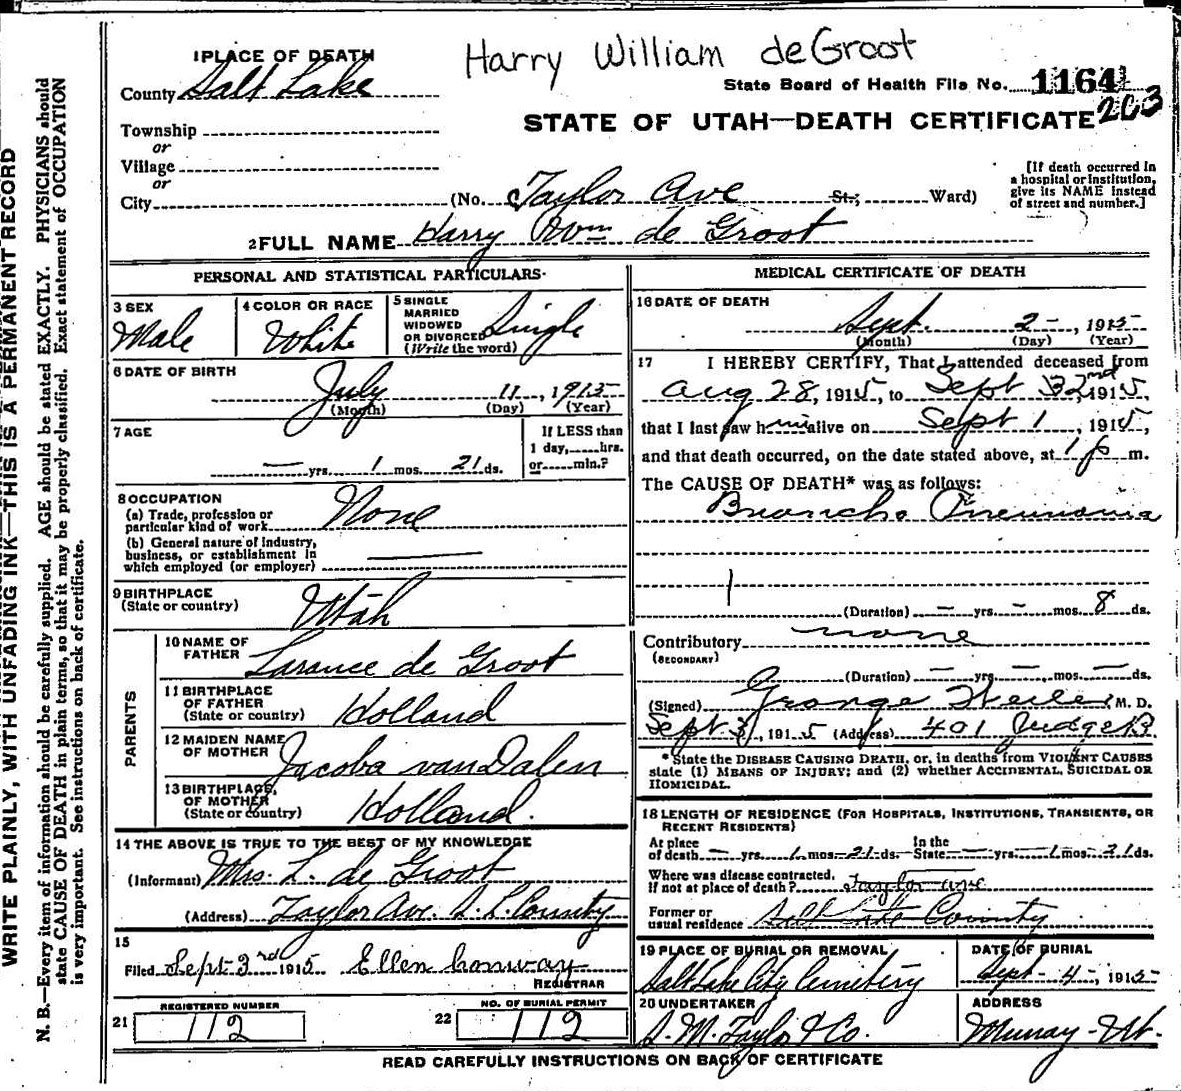 Harry William deGroot
1 PLACE OF DEATH
State Board of Health File No. 1164
County Salt Lake
203
STATE OF UTAH—DEATH CERTIFICATE
Township
or
Village
or
City
(No. Taylor Ave St.; Ward)
[If death occurred in
a hospital or institution,
give its NAME instead
of street and number.]
2 FULL NAME Harry Wm de Groot
PERSONAL AND STATISTICAL PARTICULARS
3 SEX
Male
4 COLOR OR RACE
White
5 SINGLE
MARRIED
WIDOWED
OR DIVORCED
(Write the word)
Single
6 DATE OF BIRTH
July 11, 1915
(Month) (Day) (Year)
7 AGE
— yrs. 1 mos. 21 ds.
If LESS than
1 day, hrs.
or min.?
8 OCCUPATION
(a) Trade, profession or
particular kind of work None
(b) General nature of industry,
business, or establishment in
which employed (or employer)
9 BIRTHPLACE
(State or country) Utah
PARENTS
10 NAME OF
FATHER Larance de Groot
11 BIRTHPLACE
OF FATHER
(State or country) Holland
12 MAIDEN NAME
OF MOTHER Jacoba vanDalen
13 BIRTHPLACE,
OF MOTHER
(State or country) Holland.
14 THE ABOVE IS TRUE TO THE BEST OF MY KNOWLEDGE
(Informant) Mrs. L. de Groot
(Address) Taylor Ave. S. L County
15
Filed Sept 3rd 1915 Ellen Conway
REGISTRAR
REGISTERED NUMBER
21 112
NO. OF BURIAL PERMIT
22 112
MEDICAL CERTIFICATE OF DEATH
16 DATE OF DEATH
Sept. 2 -, 1915
(Month) (Day) (Year)
17 I HEREBY CERTIFY, That I attended deceased from
Aug 28, 1915, to Sept 2nd 1915,
that I last saw him alive on Sept 1, 1915,
and that death occurred, on the date stated above, at 1 p m.
The CAUSE OF DEATH* was as follows:
Broncho Pneumonia
(Duration) — yrs. — mos. 8 ds.
Contributory none
(SECONDARY)
(Duration) — yrs. — mos. — ds.
(Signed) George M. D.
Sept 3, 1915 (Address) 401 Judge B.
* State the DISEASE CAUSING DEATH, or, in deaths from VIOLENT CAUSES
state (1) MEANS OF INJURY; and (2) whether ACCIDENTAL, SUICIDAL OR
HOMICIDAL.
18 LENGTH OF RESIDENCE (FOR HOSPITALS, INSTITUTIONS, TRANSIENTS, OR
RECENT RESIDENTS)
At place
of death — yrs. 1 mos. 21 ds.
In the
State — yrs. 1 mos. 21 ds.
Where was disease contracted.
If not at place of death? Taylor ave
Former or
usual residence Salt Lake County
19 PLACE OF BURIAL OR REMOVAL
Salt Lake City Cemetery
DATE OF BURIAL
Sept - 4 -, 1915
20 UNDERTAKER
S. M. Taylor & Co.
ADDRESS
Murray - Ut.
READ CAREFULLY INSTRUCTIONS ON BACK OF CERTIFICATE
WRITE PLAINLY, WITH UNFADING INK—THIS IS A PERMANENT RECORD
N. B.—Every item of information should be carefully supplied. AGE should be stated EXACTLY. PHYSICIANS should
state CAUSE OF DEATH in plain terms, so that it may be properly classified. Exact statement of OCCUPATION
is very important. See instructions on back of certificate.